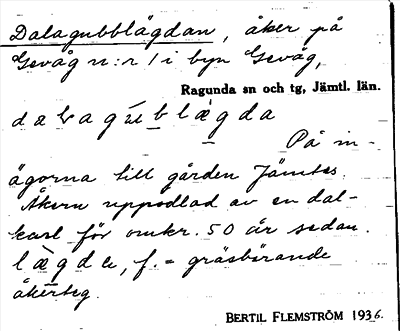 Dalagubblägdan, åker på
Gevåg n:r 1 i byn Gevåg,
Ragunda sn och tg, Jämtl. län.
På in-
ägorna till gården Jämtes.
Åkern uppodlad av en dal-
karl för omkr. 50 år sedan.
lægda, f. = gräsbärande
åkerteg.
BERTIL FLEMSTRÖM 1936.